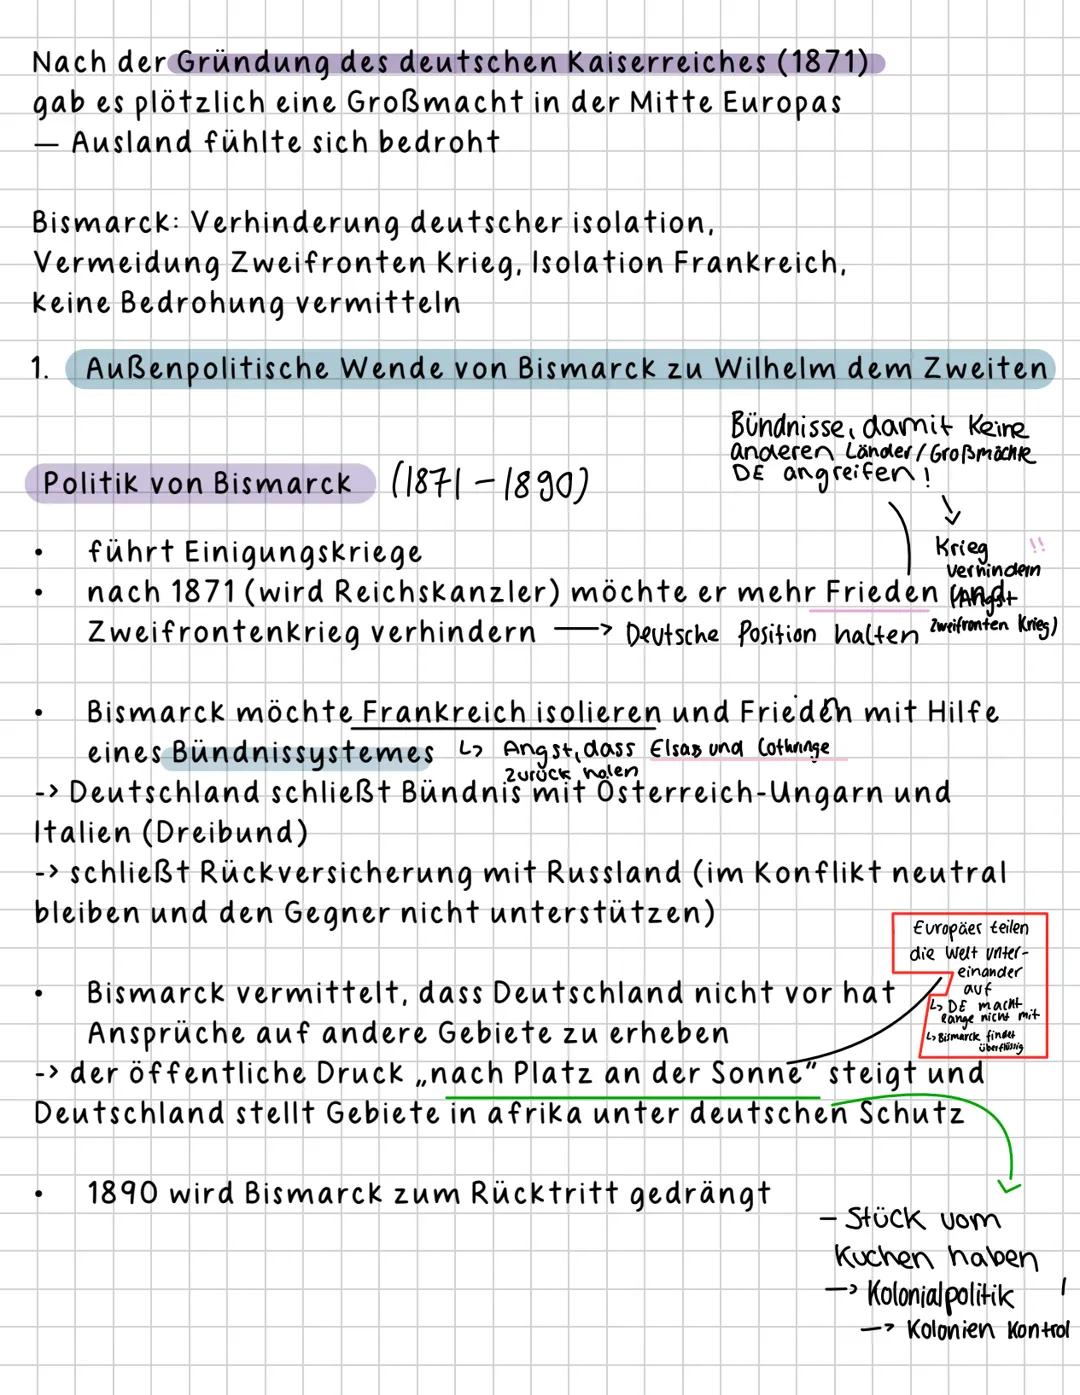 Nach der Gründung des deutschen Kaiserreiches (1871)
gab es plötzlich eine Großmacht in der Mitte Europas
— Ausland fühlte sich bedroht
Bismarck: Verhinderung deutscher isolation,
Vermeidung Zweifronten Krieg, Isolation Frankreich,
keine Bedrohung vermitteln
1. Außenpolitische Wende von Bismarck zu Wilhelm dem Zweiten
Bündnisse, damit keine
anderen Länder/Großmächte
DE angreifen!
Politik von Bismarck (1871-1890)
• führt Einigungskriege
Krieg !!
verhindern
(Angst
Zweifronten Krieg)
• nach 1871 (wird Reichskanzler) möchte er mehr Frieden und
Zweifrontenkrieg verhindern —> Deutsche Position halten
• Bismarck möchte Frankreich isolieren und Frieden mit Hilfe
eines Bündnissystemes ↳ Angst, dass Elsas und Lothringe
zurück holen
-> Deutschland schließt Bündnis mit Österreich-Ungarn und
Italien (Dreibund)
-> schließt Rückversicherung mit Russland (im Konflikt neutral
bleiben und den Gegner nicht unterstützen)
Europäer teilen
die Welt unter-
einander
auf
↳ DE macht
lange nicht mit
↳ Bismarck findet
überflüssig
• Bismarck vermittelt, dass Deutschland nicht vor hat
Ansprüche auf andere Gebiete zu erheben
-> der öffentliche Druck „nach Platz an der Sonne" steigt und
Deutschland stellt Gebiete in afrika unter deutschen Schutz
• 1890 wird Bismarck zum Rücktritt gedrängt
- Stück vom
Kuchen haben
-> Kolonialpolitik
-> Kolonien Kontrol